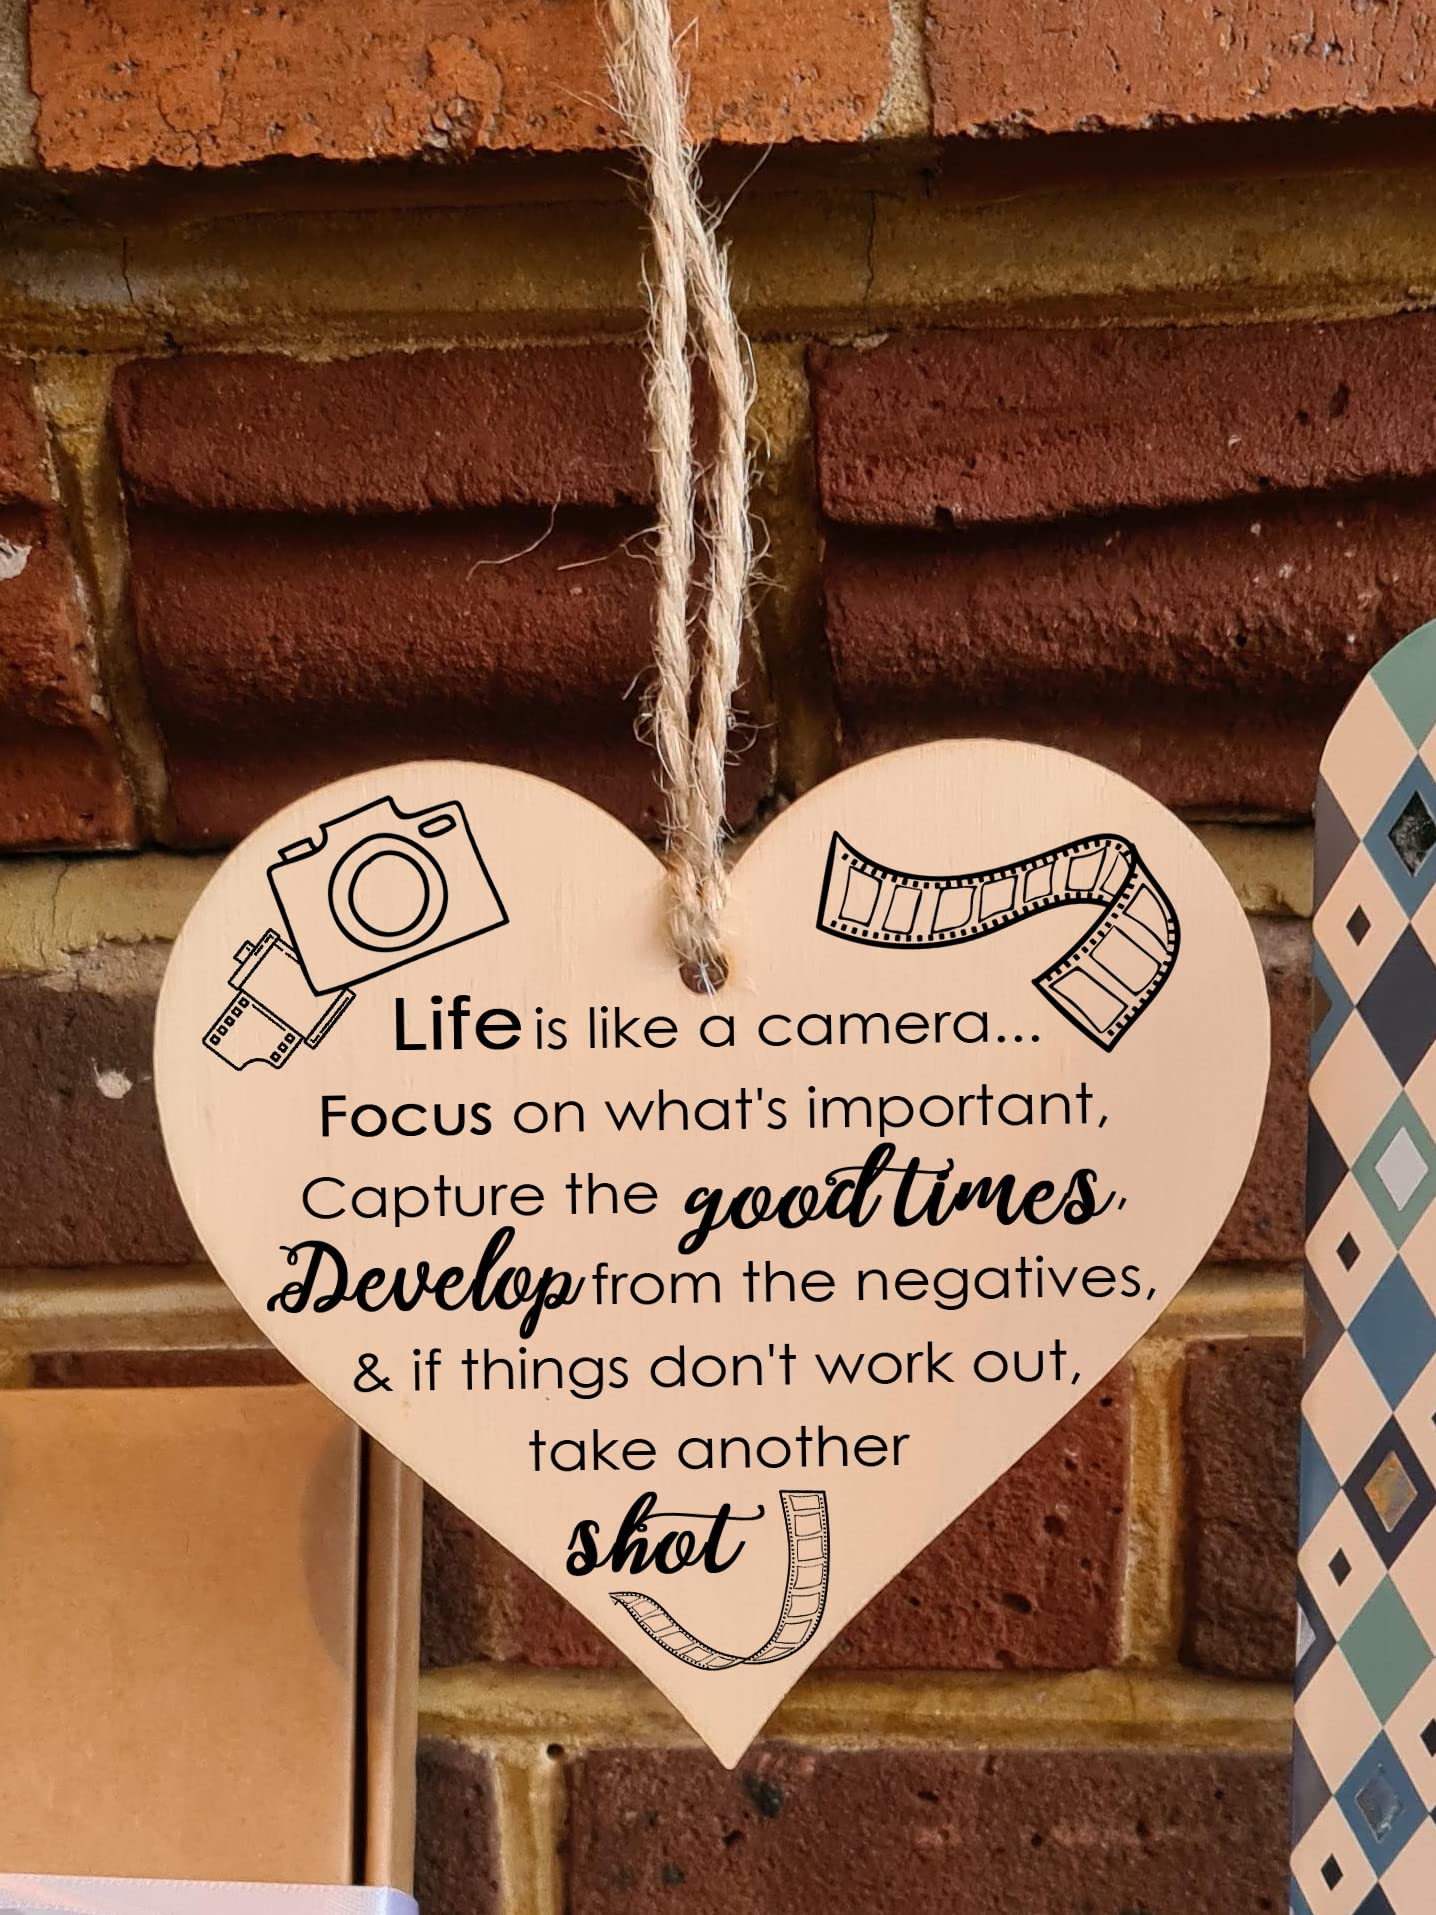 Life is like a camera...
Focus on what's important,
Capture the good times,
Develop from the negatives,
& if things don't work out,
take another
shot